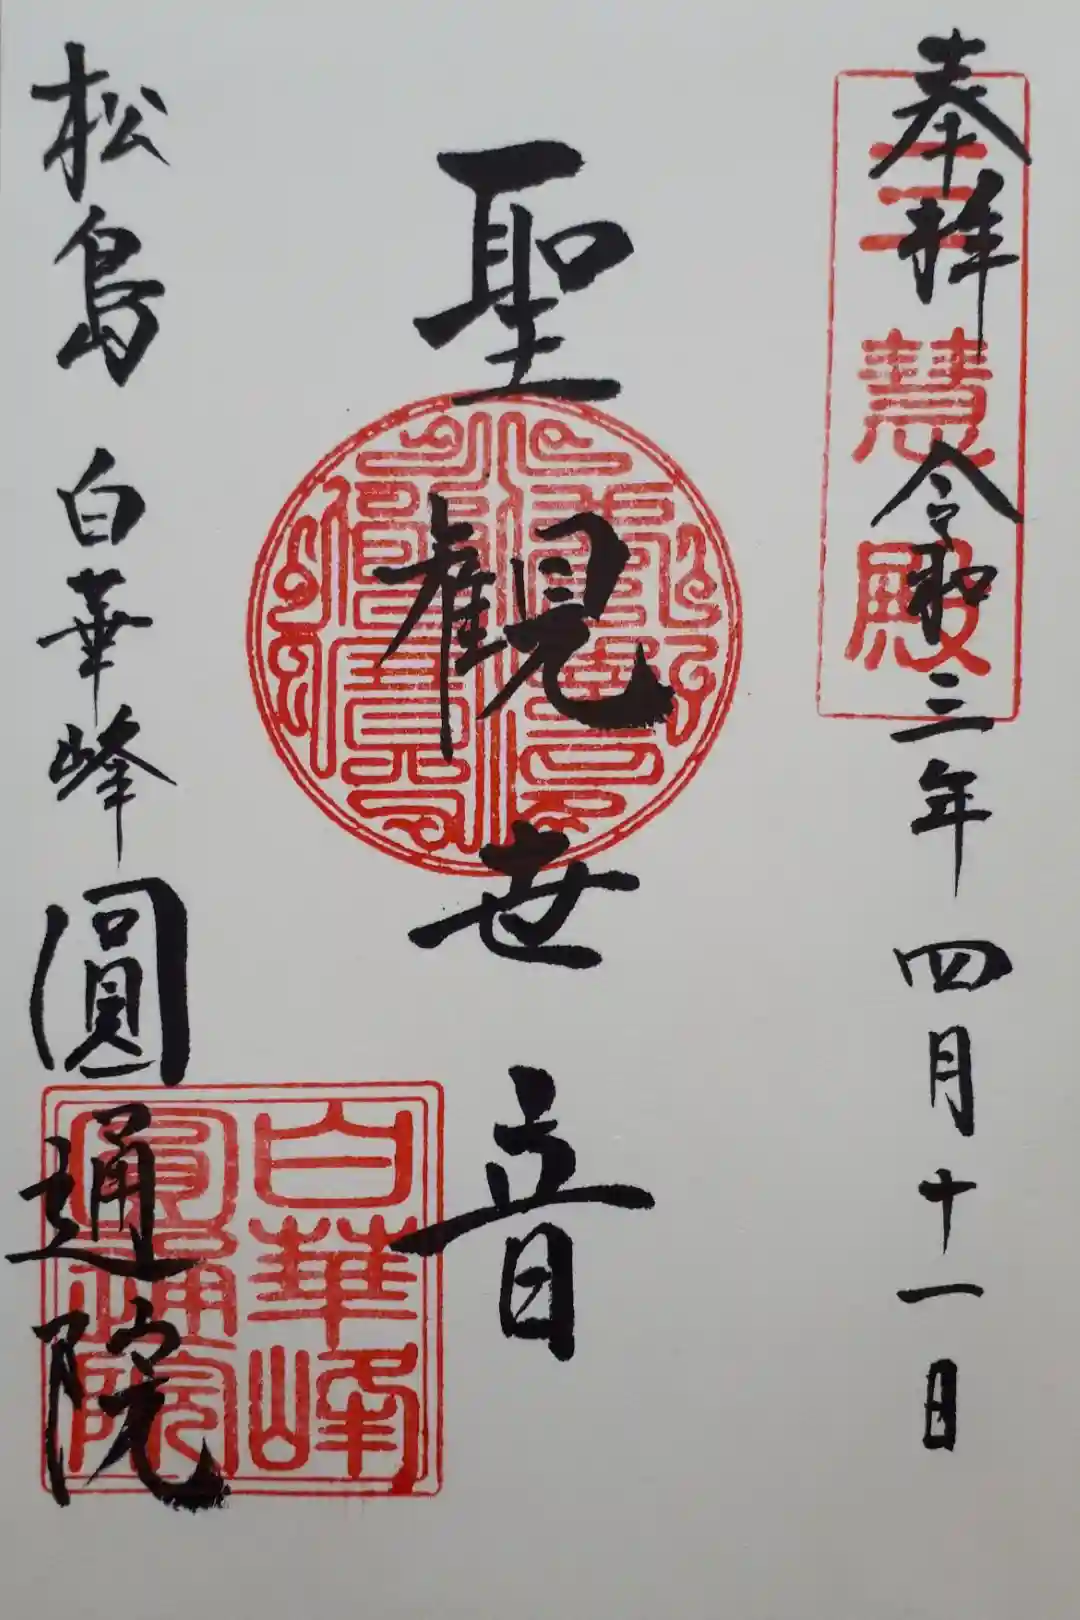 奉拝 令和三年四月十一日
三慧殿
聖観世音
松島 白華峰 圓通院
白華峰
圓通院